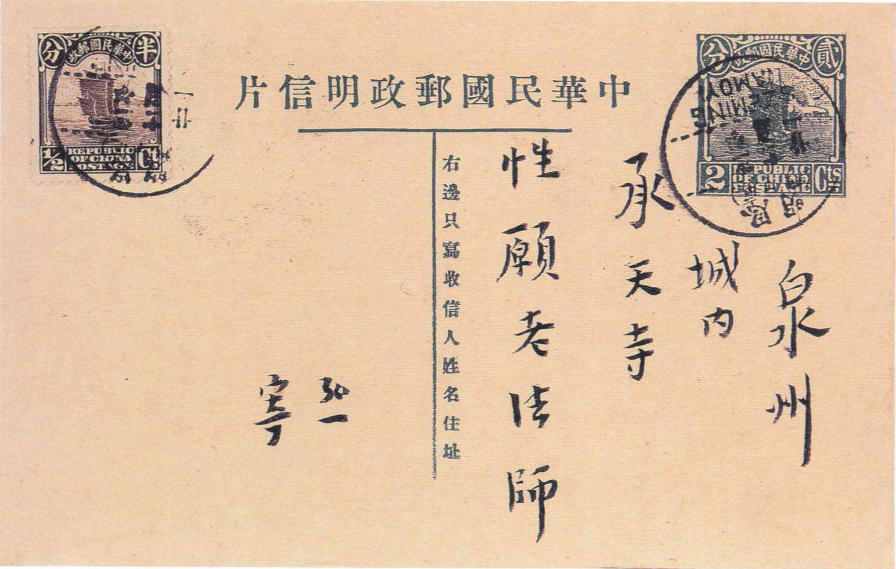 中華民國郵政明信片
中華民國郵政
半分
REPUBLIC
OF CHINA
POSTAGE
1/2 Ct
中華民國郵政
貳分
REPUBLIC
OF CHINA
2 Cts
AMOY
思明
泉州
城内
承天寺
性願老法師
右邊只寫收信人姓名住址
弘一
寄